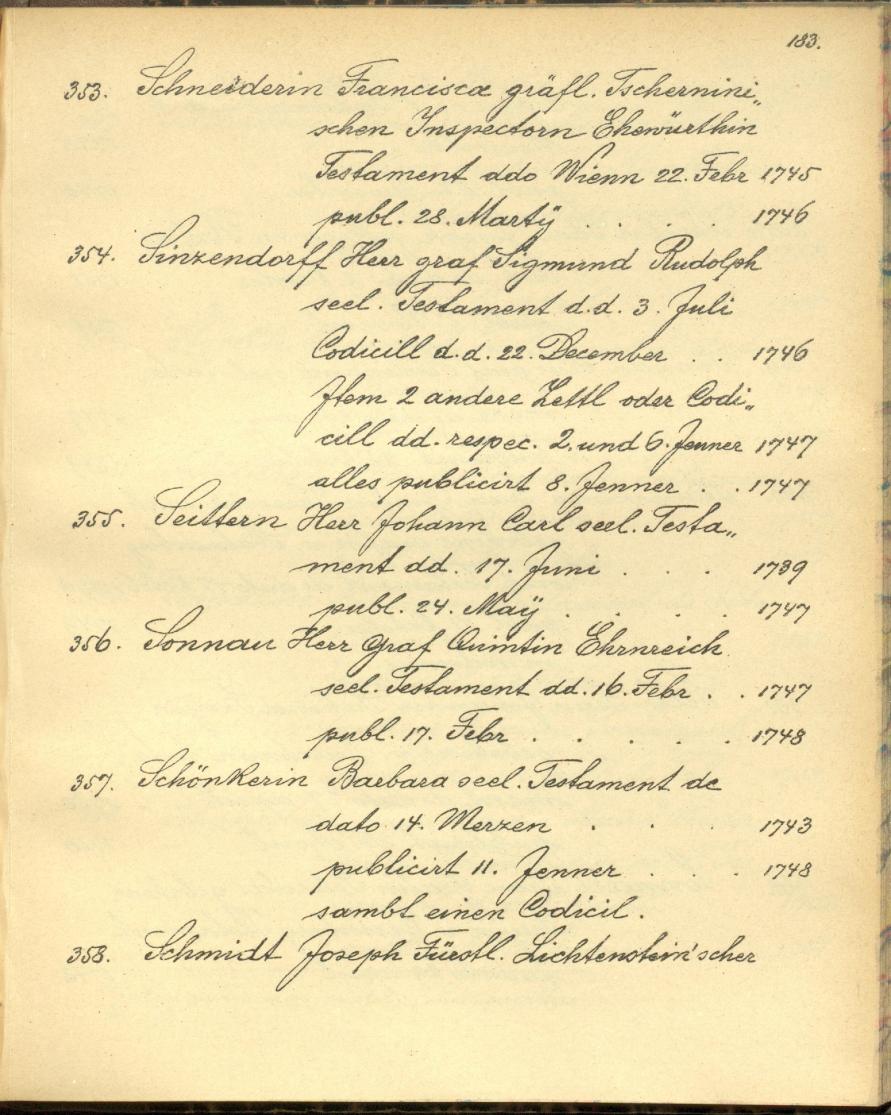 183.
353. Schneiderin Francisca gräfl. Tschernini„
schen Inspectorn Ehewürthin
Testament ddo Wienn 22. Febr 1745
publ. 28. Martÿ . . . . 1746
354. Sinzendorff Herr graf Sigmund Rudolph
seel. Testament d.d. 3. Juli
Codicill d.d. 22. December . . 1746
Item 2 andere Zettl oder Codi„
cill dd. respec. 2. und 6. Jenner 1747
alles publicirt 8. Jenner . . 1747
355. Seittern Herr Johann Carl seel. Testa„
ment dd. 17. Juni . . . 1739
publ. 24. Maÿ . . . . 1747
356. Sonnau Herr Graf Quintin Ehrnreich
seel. Testament dd. 16. Febr . . 1747
publ. 17. Febr . . . . . 1748
357. Schönkerin Barbara seel. Testament de
dato 14. Merzen . . . 1743
publicirt 11. Jenner . . . 1748
sambt einen Codicil.
358. Schmidt Joseph Fürstl. Lichtenstein'scher